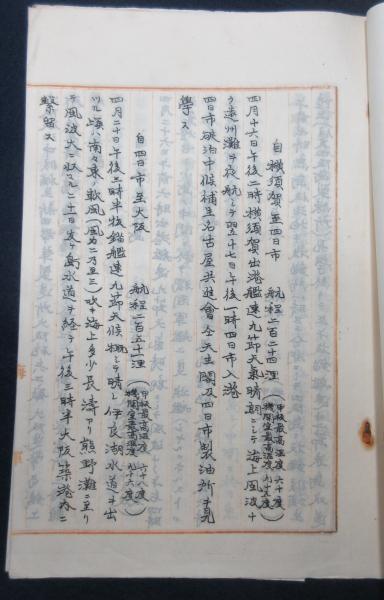 自横須賀至四日市　航程二百二十四浬（甲板最高温度 六十度 機関室最高温度 九十五度）
四月十六日午後二時横須賀出港艦速九節天氣晴朗ニシテ海上風波ナ
ク遠州灘ヲ夜航シテ翌十七日午後一時四日市入港
四日市碇泊中候補生名古屋共進會仝天主閣及四日市製油所ヲ見
學ス
自四日市至大阪　航程二百五十浬（甲板最高温度 六十八度 機関室最高温度 九十六度）
四月二十日午後三時半抜錨艦速九節天候概シテ晴し伊良湖水道ヲ出
ツル頃ハ南々東ノ軟風(風力二乃至三)吹キ海上多少長濤アリ熊野灘ニ至リ
テ風波大ニ収ハル二十一日友ヶ島水道ヲ経テ午後三時半大阪築港内ニ
繫留ス